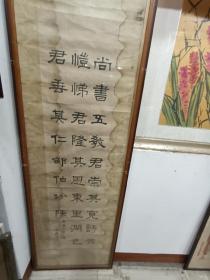 尚書五教君崇其寬詩云
愷悌君隆其恩東里潤色
君垂其仁邵伯分陝